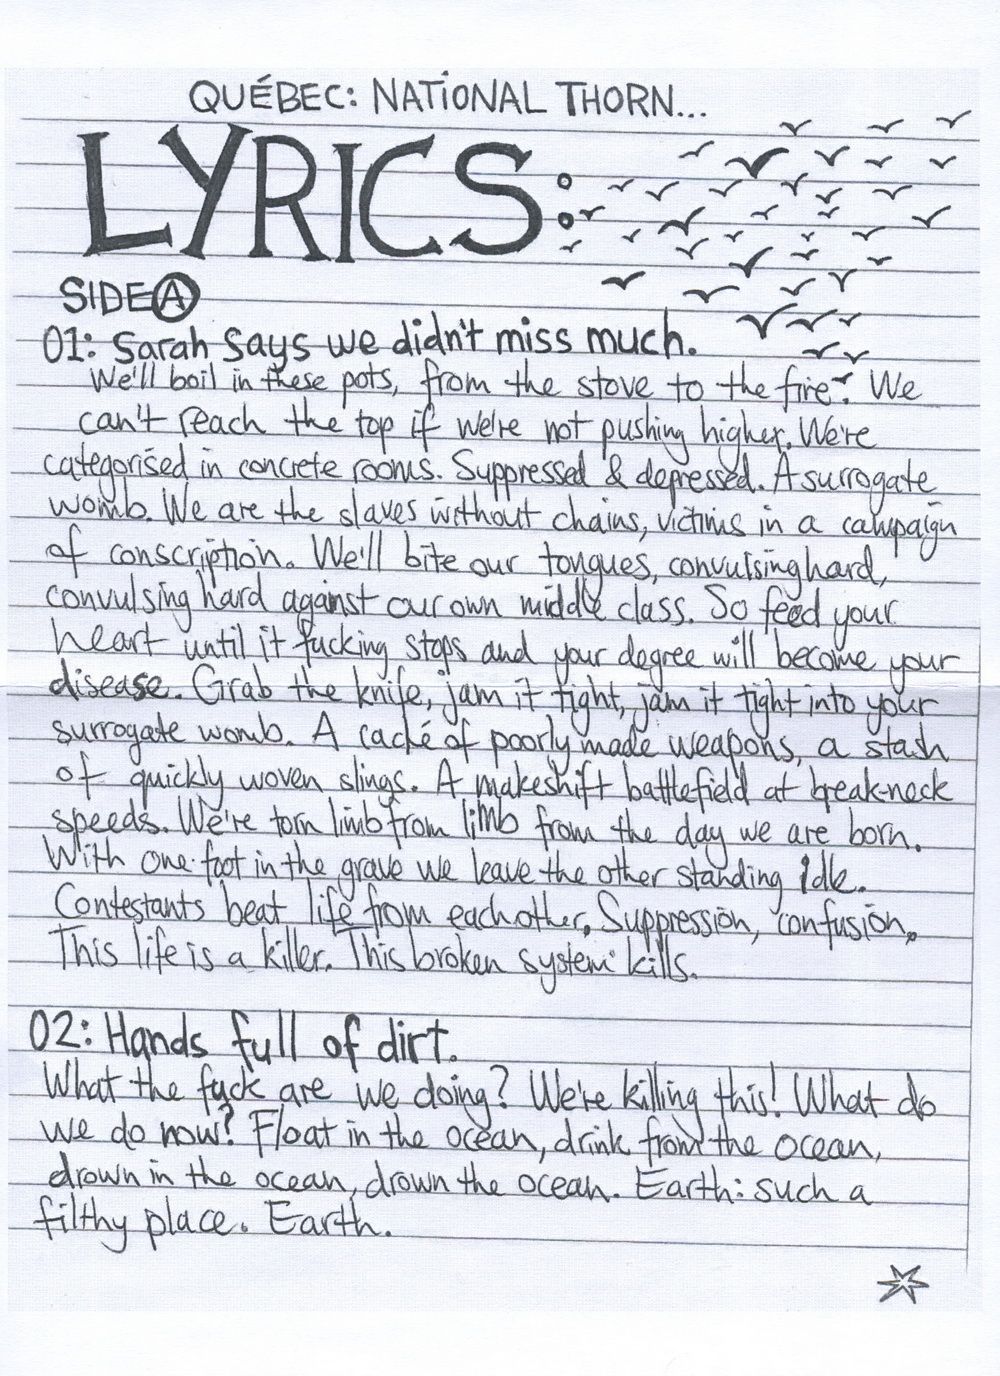 QUÉBEC: NATIONAL THORN...
LYRICS:
SIDE A
01: Sarah Says we didn't miss much.
We'll boil in these pots, from the stove to the fire. We
can't reach the top if we're not pushing higher. We're
categorised in concrete rooms. Suppressed & depressed. A surrogate
womb. We are the slaves without chains, victims in a campaign
of conscription. We'll bite our tongues, convulsing hard,
convulsing hard against our own middle class. So feed your
heart until it fucking stops and your degree will become your
disease. Grab the knife, jam it tight, jam it tight into your
surrogate womb. A caché of poorly made weapons, a stash
of quickly woven slings. A makeshift battlefield at break-neck
speeds. We're torn limb from limb from the day we are born.
With one foot in the grave we leave the other standing idle.
Contestants beat life from each other. Suppression, confusion.
This life is a killer. This broken system kills.
02: Hands full of dirt.
What the fuck are we doing? We're killing this! What do
we do now? Float in the ocean, drink from the ocean,
drown in the ocean, drown the ocean. Earth: such a
filthy place. Earth.